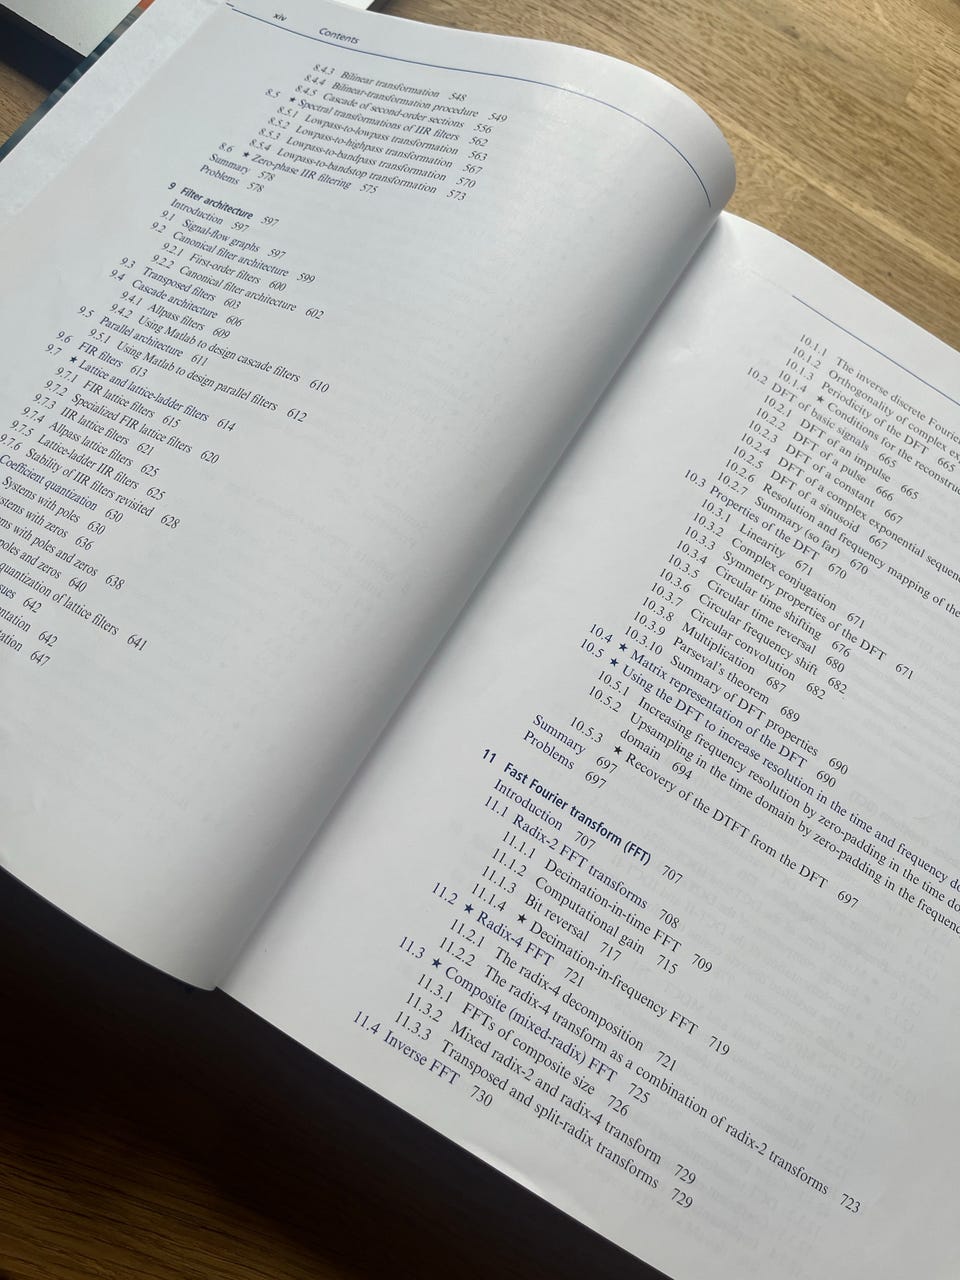 xiv
Contents
8.4.3 Bilinear transformation 548
8.4.4 Bilinear-transformation procedure 549
8.4.5 Cascade of second-order sections 556
8.5 ★ Spectral transformations of IIR filters 562
8.5.1 Lowpass-to-lowpass transformation 563
8.5.2 Lowpass-to-highpass transformation 567
8.5.3 Lowpass-to-bandpass transformation 570
8.5.4 Lowpass-to-bandstop transformation 573
8.6 ★ Zero-phase IIR filtering 575
Summary 578
Problems 578
9 Filter architecture 597
Introduction 597
9.1 Signal-flow graphs 597
9.2 Canonical filter architecture 599
9.2.1 First-order filters 600
9.2.2 Canonical filter architecture 602
9.3 Transposed filters 603
9.4 Cascade architecture 606
9.4.1 Allpass filters 609
9.4.2 Using Matlab to design cascade filters 610
9.5 Parallel architecture 611
9.5.1 Using Matlab to design parallel filters 612
9.6 FIR filters 613
9.7 ★ Lattice and lattice-ladder filters 614
9.7.1 FIR lattice filters 615
9.7.2 Specialized FIR lattice filters 620
9.7.3 IIR lattice filters 621
9.7.4 Allpass lattice filters 625
9.7.5 Lattice-ladder IIR filters 625
9.7.6 Stability of IIR filters revisited 628
Coefficient quantization 630
Systems with poles 630
stems with zeros 636
ms with poles and zeros 638
poles and zeros 640
quantization of lattice filters 641
sues 642
ntation 642
tation 647
10.1.1 The inverse discrete Fourier
10.1.2 Orthogonality of complex ex
10.1.3 Periodicity of the DFT 665
10.1.4 ★ Conditions for the reconstruc
10.2 DFT of basic signals 665
10.2.1 DFT of an impulse 665
10.2.2 DFT of a pulse 666
10.2.3 DFT of a constant 667
10.2.4 DFT of a complex exponential sequenc
10.2.5 DFT of a sinusoid 667
10.2.6 Resolution and frequency mapping of the
10.2.7 Summary (so far) 670
10.3 Properties of the DFT 670
10.3.1 Linearity 671
10.3.2 Complex conjugation 671
10.3.3 Symmetry properties of the DFT 671
10.3.4 Circular time shifting 676
10.3.5 Circular time reversal 680
10.3.6 Circular frequency shift 682
10.3.7 Circular convolution 682
10.3.8 Multiplication 687
10.3.9 Parseval's theorem 689
10.3.10 Summary of DFT properties 690
10.4 ★ Matrix representation of the DFT 690
10.5 ★ Using the DFT to increase resolution in the time and frequency do
10.5.1 Increasing frequency resolution by zero-padding in the time do
10.5.2 Upsampling in the time domain by zero-padding in the frequenc
domain 694
10.5.3 ★ Recovery of the DTFT from the DFT 697
Summary 697
Problems 697
11 Fast Fourier transform (FFT) 707
Introduction 707
11.1 Radix-2 FFT transforms 708
11.1.1 Decimation-in-time FFT 709
11.1.2 Computational gain 715
11.1.3 Bit reversal 717
11.1.4 ★ Decimation-in-frequency FFT 719
11.2 ★ Radix-4 FFT 721
11.2.1 The radix-4 decomposition 721
11.2.2 The radix-4 transform as a combination of radix-2 transforms 723
11.3 ★ Composite (mixed-radix) FFT 725
11.3.1 FFTs of composite size 726
11.3.2 Mixed radix-2 and radix-4 transform 729
11.3.3 Transposed and split-radix transforms 729
11.4 Inverse FFT 730